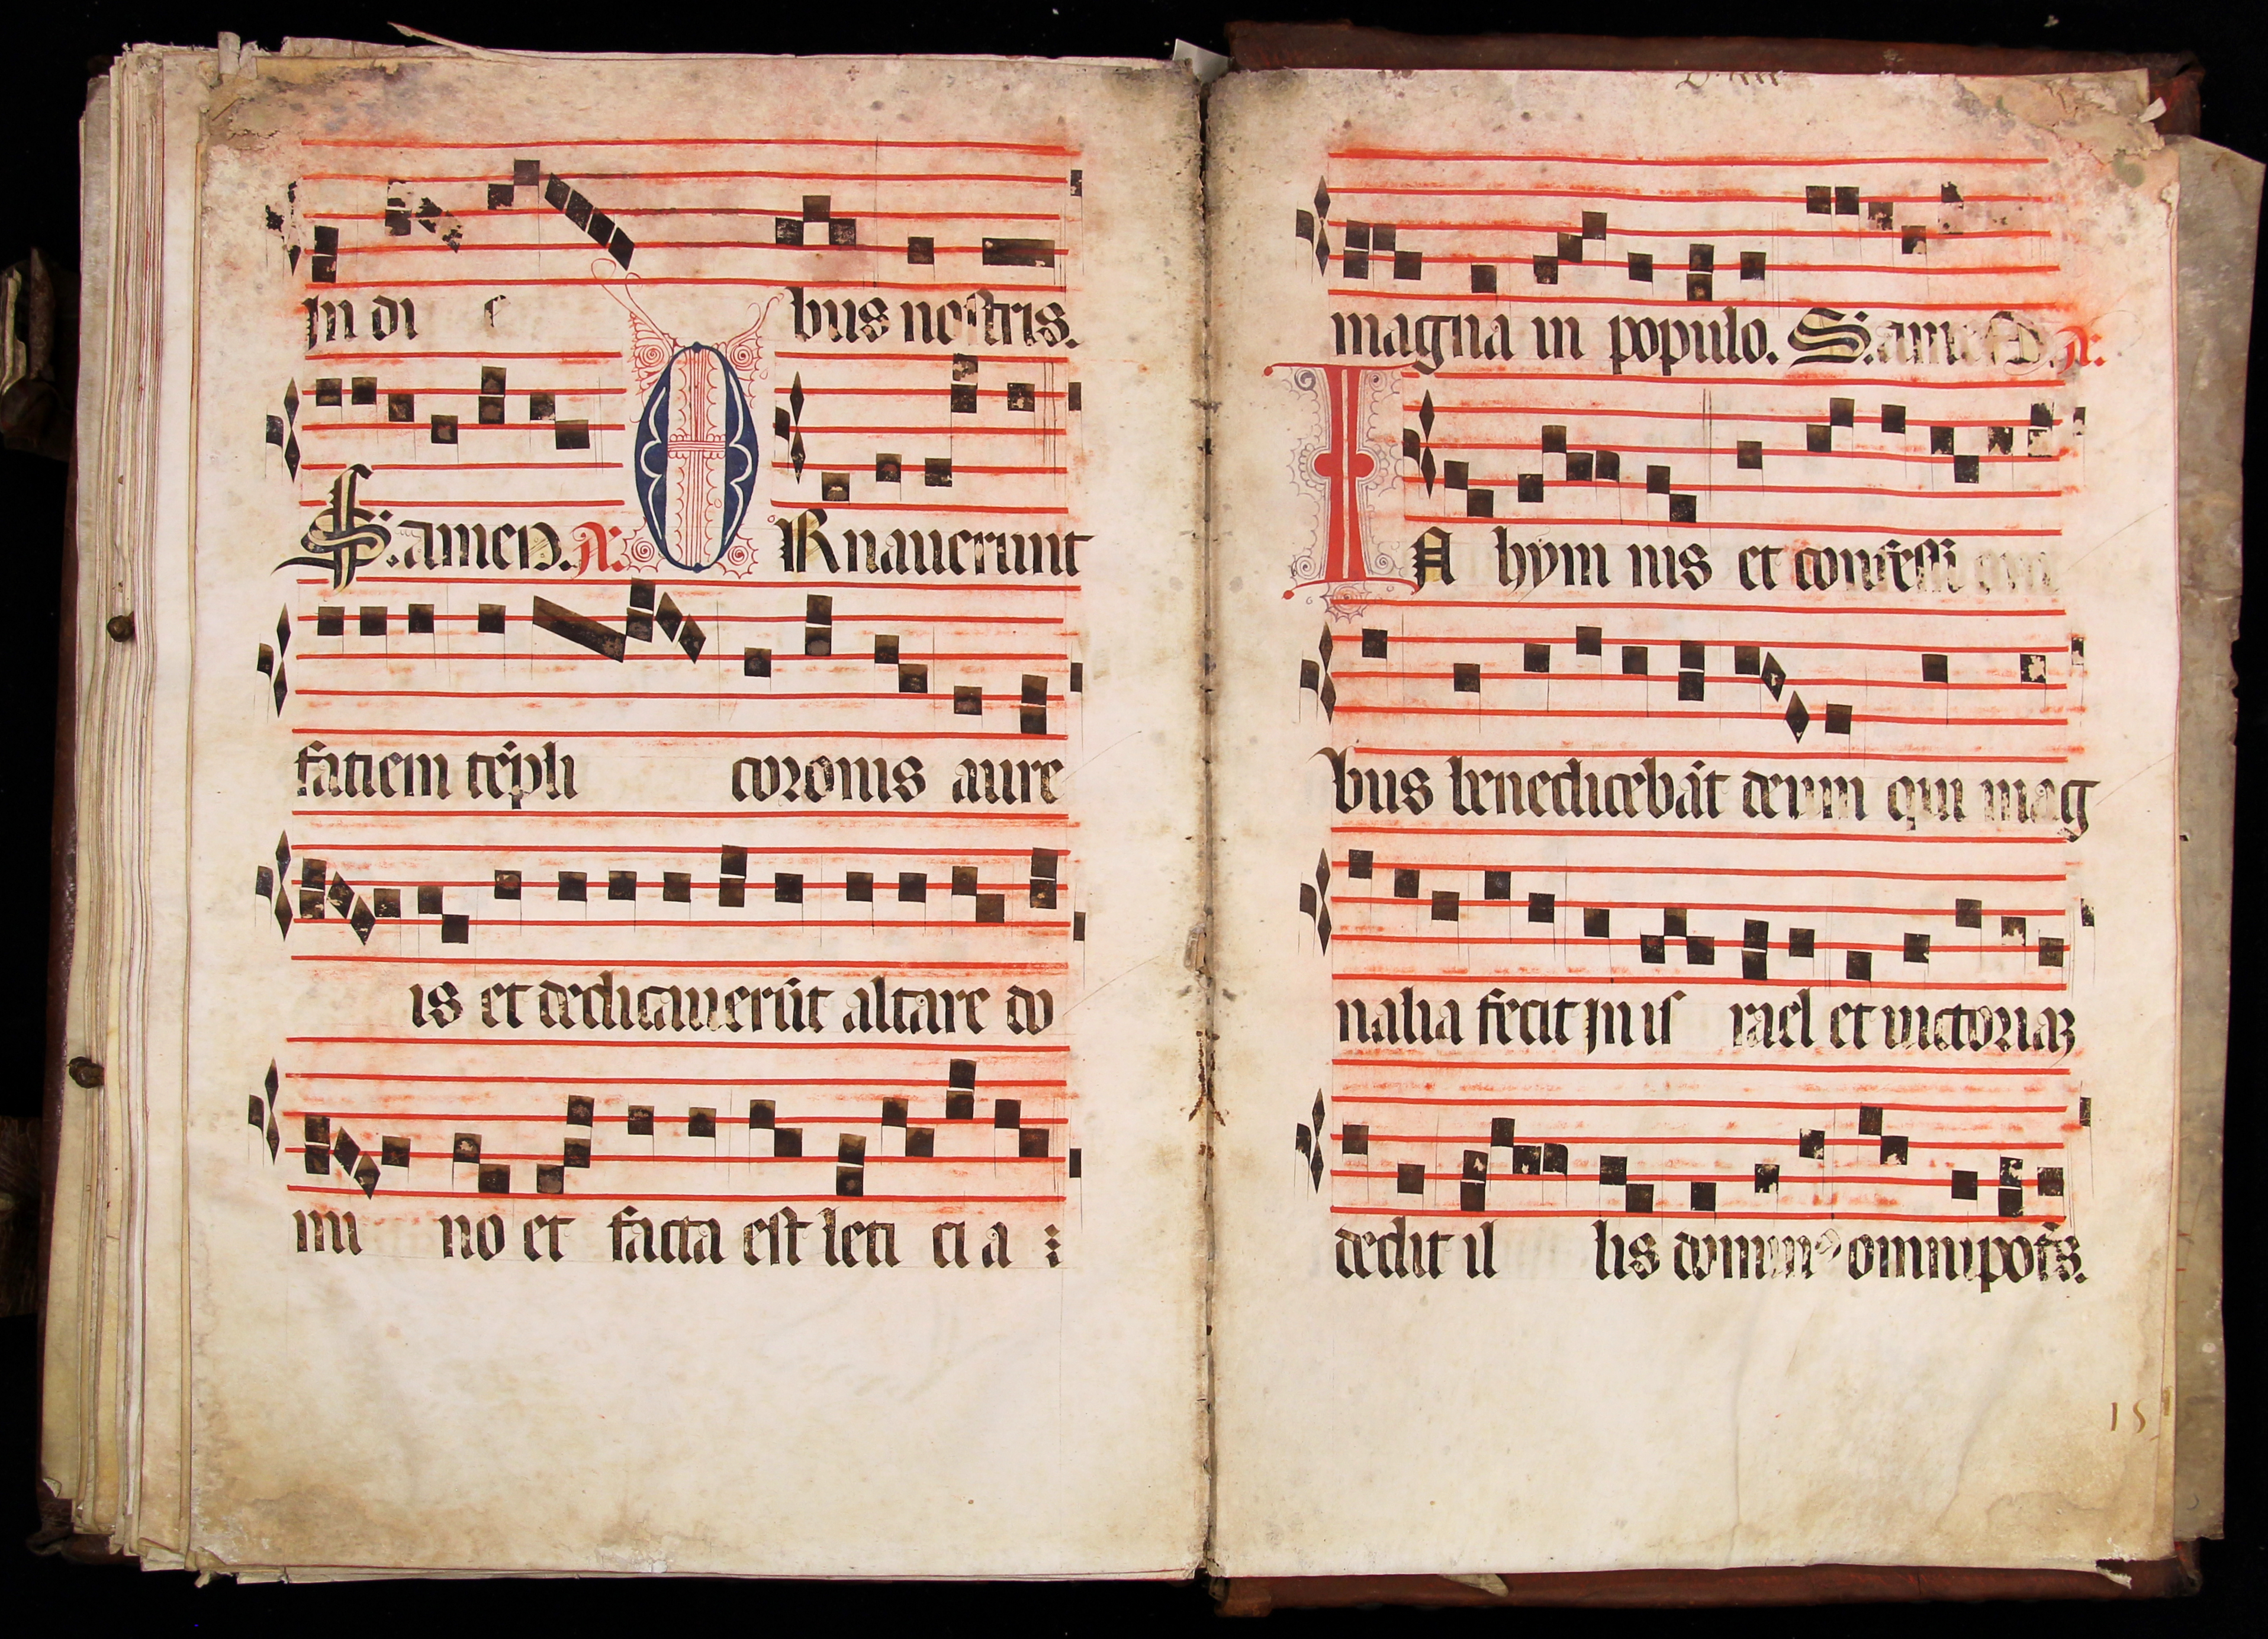 in di e bus nostris.
S. amen. A. ORnauerunt
faciem tẽpli coronis aure
is et dedicauerũt altare do
mi no et facta est leti ci a :
magna in populo. S. amen A.
IN hym nis et confessi oni
bus benedicebãt deum qui mag
nalia fecit in is rael et uictoriaʒ
dedit il lis omnipotẽs.
15